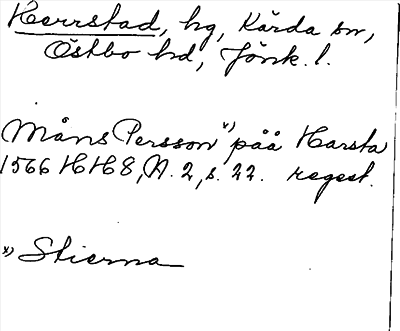 Herrstad, hg, Kärda sn,
Östbo hd, Jönk. l.
Måns Persson x) påå Harsta
1566 HH 8, A. 2, s. 22. regest.
x) Stierna